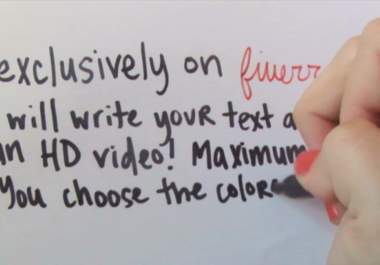 exclusively on fiverr
will write your text a
an HD video! Maximum
You choose the colors